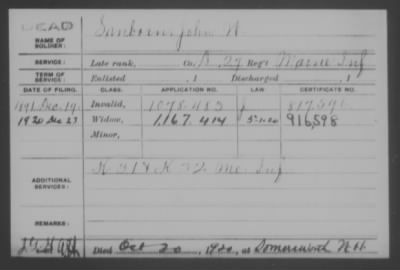 DEAD
NAME OF SOLDIER: Sanborn, John N.
SERVICE: Late rank, Co. D. 27 Reg't Maine Inf
TERM OF SERVICE: Enlisted , 1 Discharged , 1
DATE OF FILING. CLASS. APPLICATION NO. LAW. CERTIFICATE NO.
1891, Dec. 19. Invalid, 1078.483 817,591
1920 Dec 27 Widow, 1,167 414 5-1-20 916,598
Minor,
ADDITIONAL SERVICES: K 314 K 32 Me. Inf
REMARKS:
Died Oct 20, 1920, at Somersworth N.H.